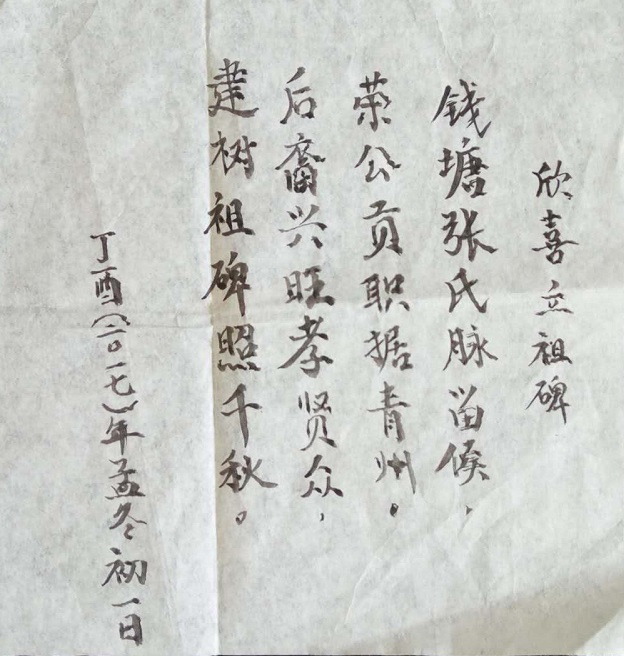 欣喜立祖碑
钱塘张氏脉留候，
荣公贡职据青州。
后裔兴旺孝贤众，
建树祖碑照千秋。
丁酉（二〇一七）年孟冬初一日